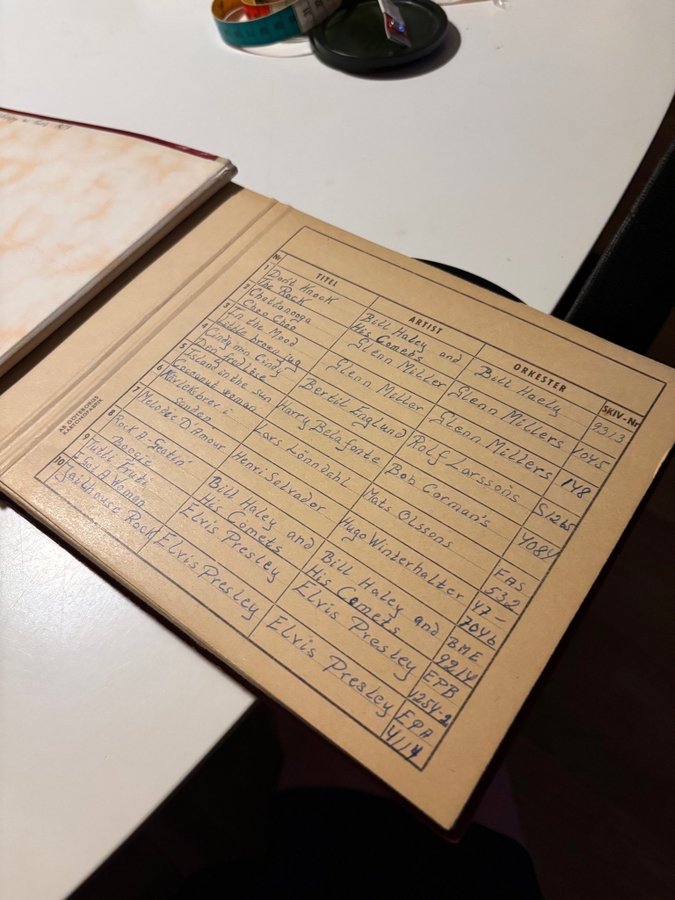 Nr TITEL ARTIST ORKESTER SKIV-Nr
1 Don't Knock Bill Haley and Bill Haely 9313
The Rock His Comets
2 Chattanooga Glenn Miller Glenn Millers 4045
Choo Choo
3 In the Mood Glenn Miller Glenn Millers 148
Little brown jug
4 Cindy min Cindy Bertil Englund Rolf Larssons S1265
Den
5 Island in the sun Harry Belafonte Bob Corman's 4084
Cocoanut woman
6 Kärleksbrev i Lars Lönndahl Mats Olssons EAS
sanden 532
7 Melodie D'Amour Henri Salvador Hugo Winterhalter 47-
7046
8 Rock-A-Beatin' Bill Haley and Bill Haley and BME
Boogie His Comets His Comets 9214
9 Tutti Frutti Elvis Presley Elvis Presley EPB
I Got A Woman 1254-2
10 Jailhouse Rock Elvis Presley Elvis Presley EPA
4114
AB GÖTEBORGS
KARTONGFABRIK